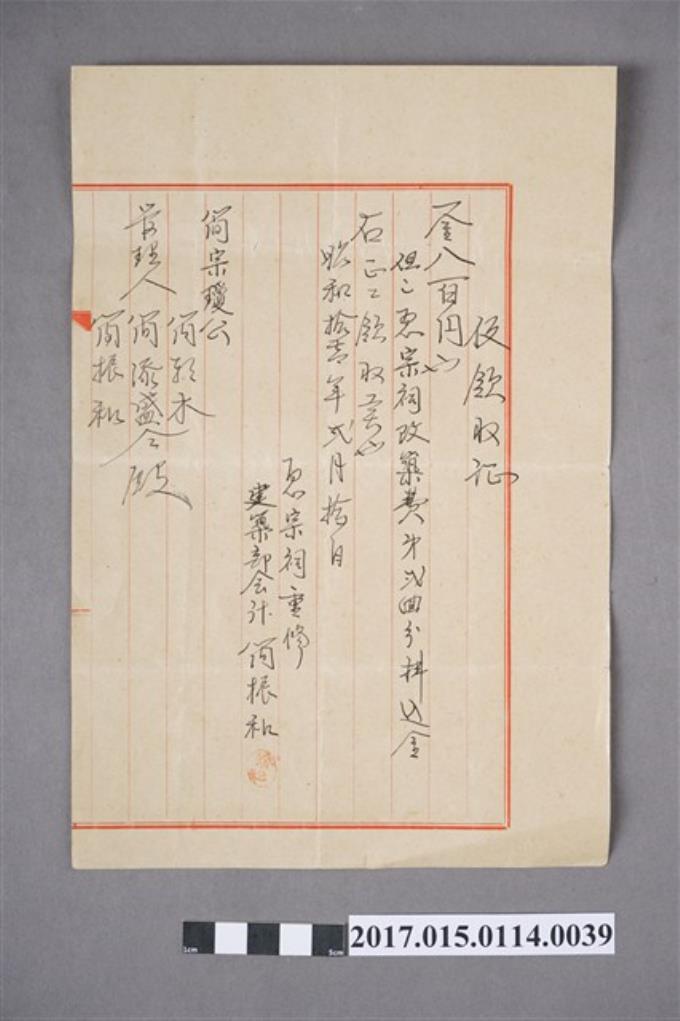 仮領収証
金八百円也
但シ惠宗祠改築費第弍回分拂込金
右正ニ領収候也
昭和拾壹年弍月拾日
惠宗祠重修
建築部会計 簡振和
簡宗瓊公
管理人 簡新木
簡添盛 仝殿
簡振和
1cm
5cm
2017.015.0114.0039